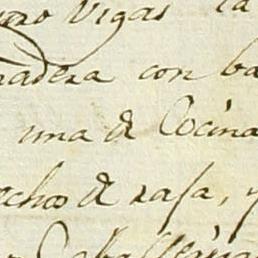 Vigas la
madera con ba
una de Cocina
echos de rasa, y
Caballeriza